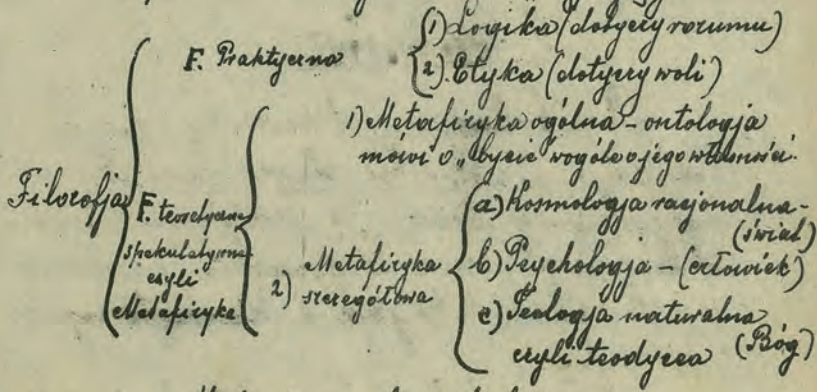 Filozofja
F. Praktyczna
1) Logika (dotyczy rozumu)
2) Etyka (dotyczy woli)
F. teoretyczna
spekulatywna
czyli
Metafizyka
1) Metafizyka ogólna - ontologja
mówi o „bycie” wogóle o jego własności.
2) Metafizyka
szczegółowa
a) Kosmologja racjonalna -
(świat)
b) Psychologja - (człowiek)
c) Teologja naturalna
czyli teodycea (Bóg)